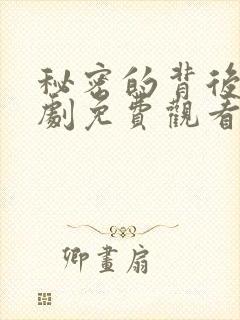 秘密的背後
劇免費觀看
卿畫扇